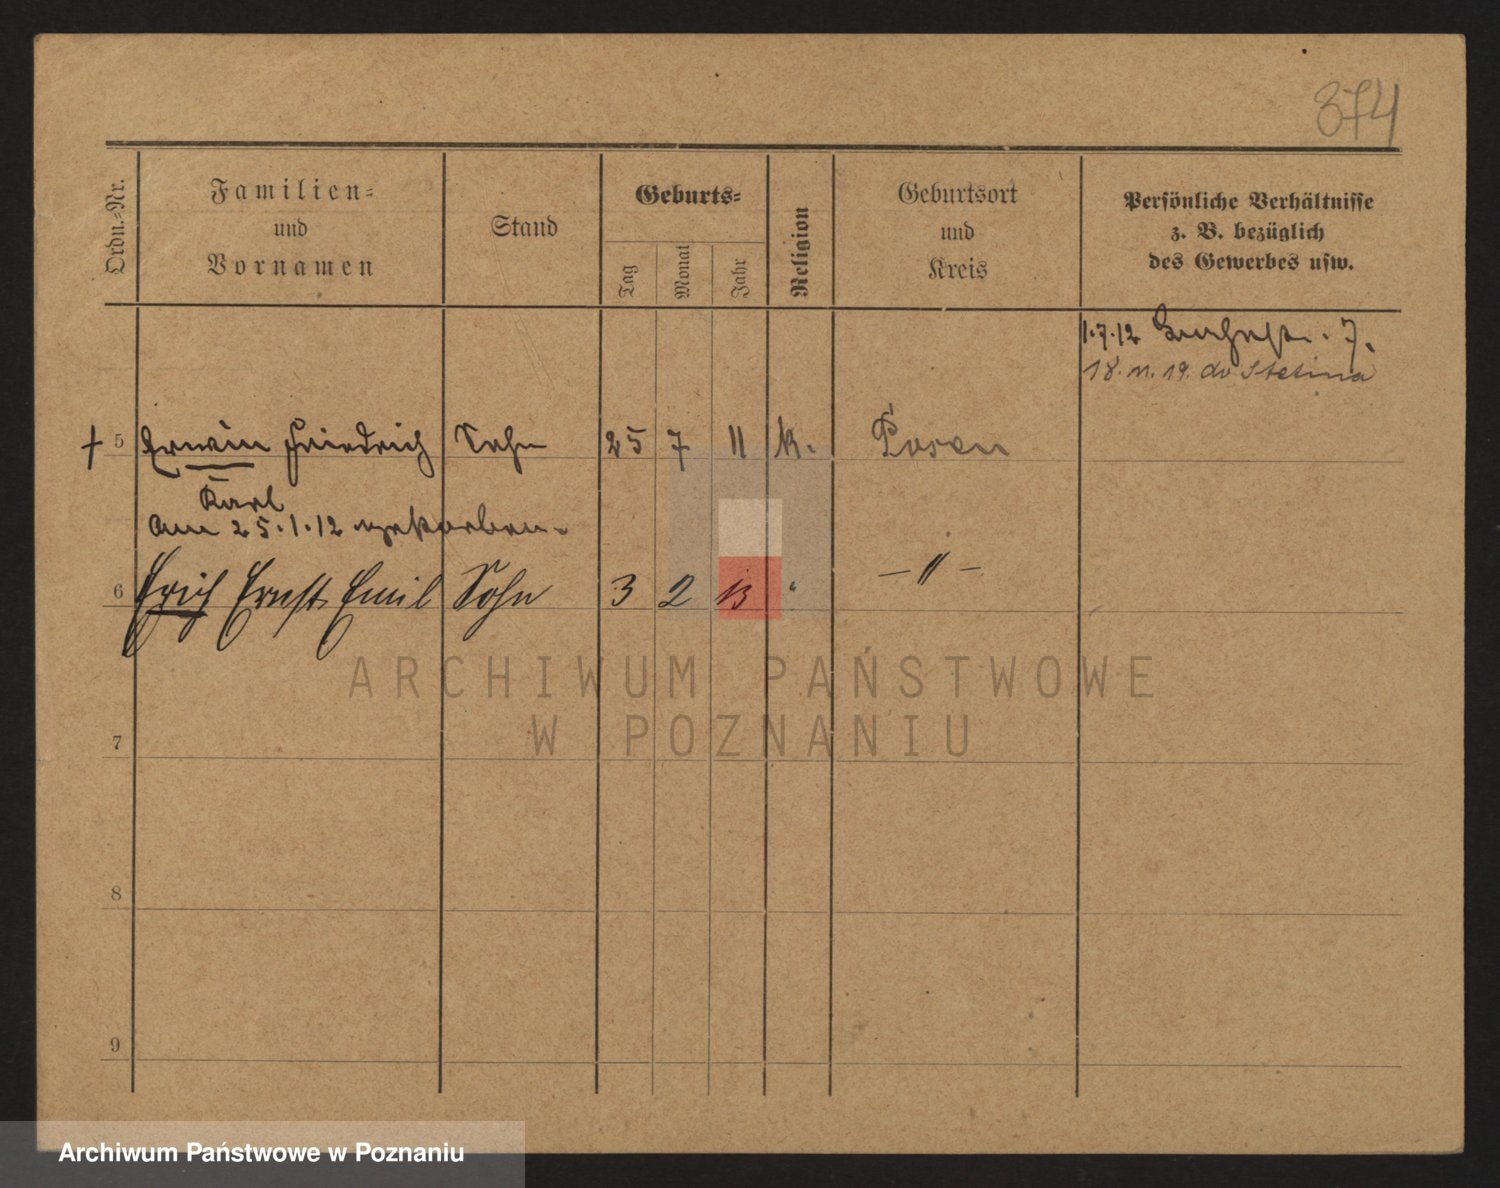 374
Ordn.-Nr.
Familien-
und
Vornamen
Stand
Geburts-
Tag
Monat
Jahr
Religion
Geburtsort
und
Kreis
Persönliche Verhältnisse
z. B. bezüglich
des Gewerbes usw.
1.7.12 7.
18.11.19. do Stetina
† 5 Erwin Friedrich Sohn 25 7 11 k. Posen
Karl
am 25.1.12 verstorben.
6 Erich Ernst Emil Sohn 3 2 13 " — " —
7
8
9
ARCHIWUM PAŃSTWOWE
W POZNANIU
Archiwum Państwowe w Poznaniu